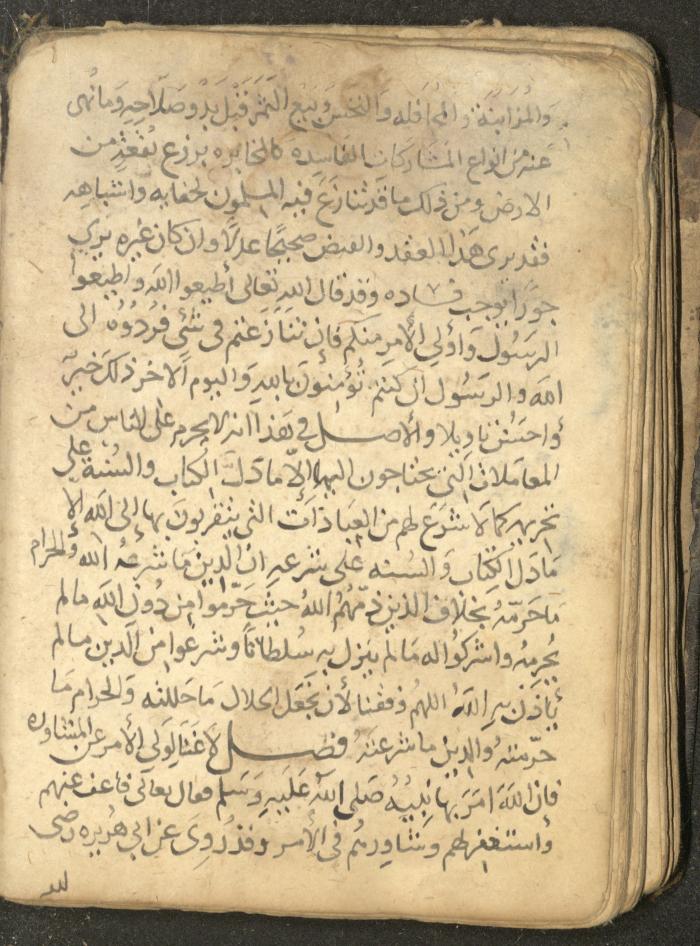 والمزابنة والمحاقله والنجش وبيع الثمر قبل بدو صلاحه وما نهى
عنه من انواع المشاركات الفاسده كالمخابره بزرع بقعة من
الارض ومن ذلك ما قد تنازع فيه المسلمون لخفايه واشتباهه
فقد يرى هذا العقد والقبض صحيحا عدلا وان كان غيره يرى
جورا يوجب فساده وقد قال الله تعالى أطيعوا الله واطيعوا
الرسول وأولي الأمر منكم فإن تنازعتم فى شئ فردوه الى
الله والرسول ان كنتم تؤمنون بالله واليوم الآخر ذلك خير
وأحسن تاويلا والأصل في هذا انه لا يحرم على الناس من
المعاملات التي يحتاجون اليها إلا ما دل الكتاب والسنة على
تحريمه كما لا شرع لهم من العبادات التي يتقربون بها إلى الله إلا
ما دل الكتاب والسنه على شرعه ان الدين ما شرعه الله والحرام
ما حرمه بخلاف الذين ذمهم الله حيث حرموا من دون الله مالم
يحرمه واشركوا له مالم ينزل به سلطانا وشرعوا من الدين مالم
يأذن به الله اللهم وفقنا لأن نجعل الحلال ما حللته والحرام ما
حرمته والدين ما شرعته فصل لا غنا لولى الأمر عن المشاوره
فان الله امر بها نبيه صلى الله عليه وسلم فقال تعالى فاعف عنهم
واستغفر لهم وشاورهم فى الأمر وقد روى عن ابي هريره رضى
لله